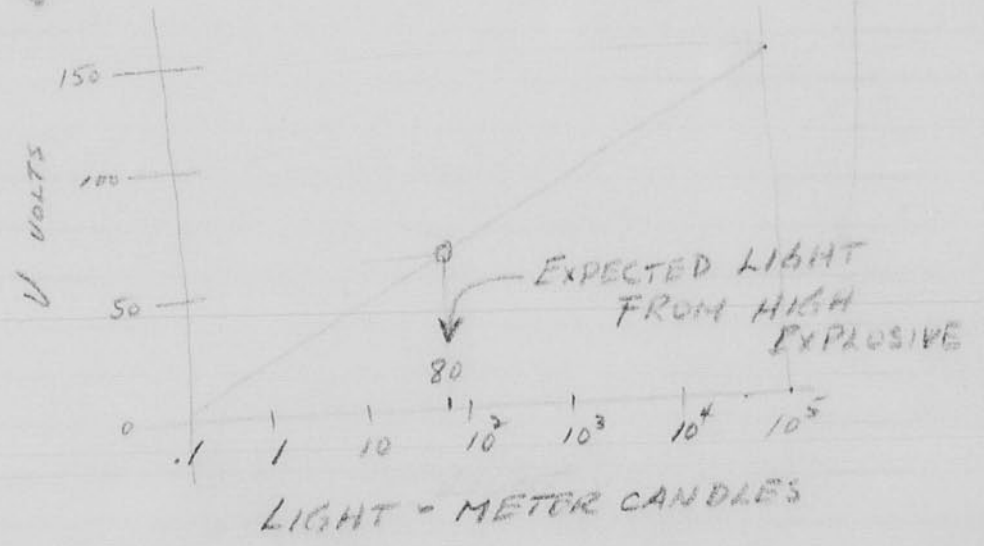 150
100
V VOLTS
50
0
EXPECTED LIGHT
FROM HIGH
EXPLOSIVE
80
.1 1 10 10² 10³ 10⁴ 10⁵
LIGHT - METER CANDLES